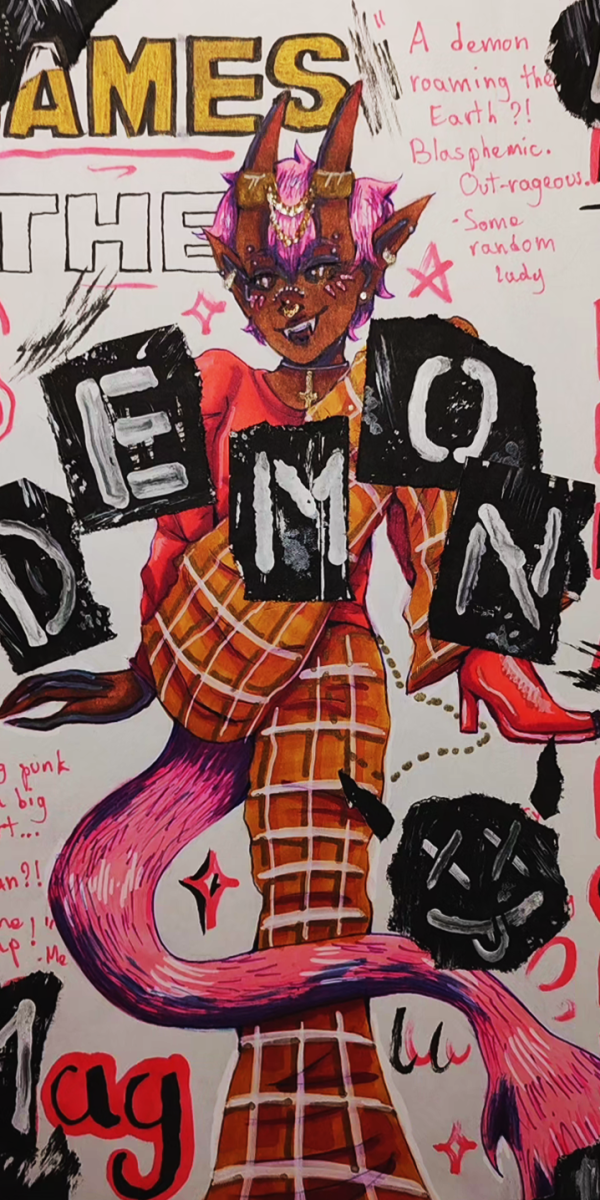 AMES
THE
"A demon
roaming the
Earth ?!
Blasphemic.
Out-rageous.
-Some
random
lady
DEMON
punk
big
an?!
"
-Me
Mag